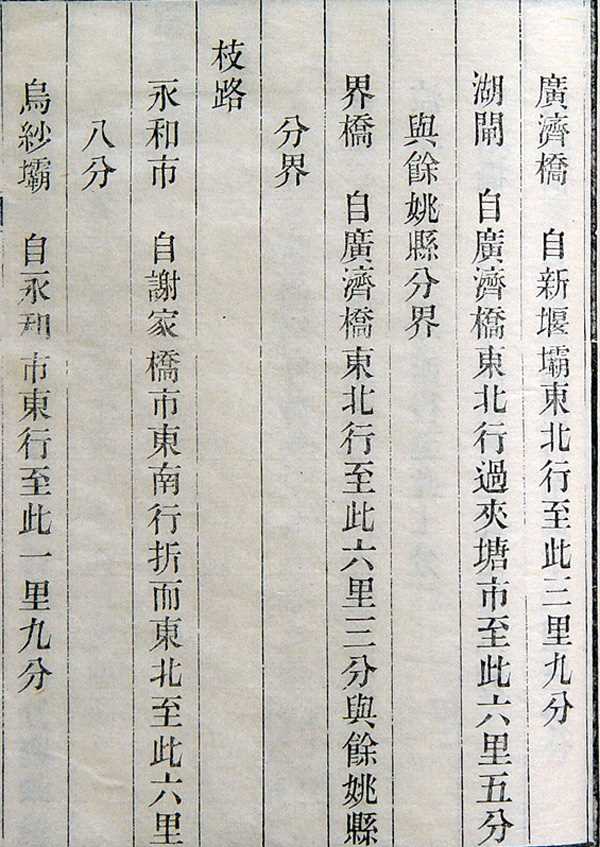 廣濟橋　自新堰壩東北行至此三里九分
湖閘　自廣濟橋東北行過夾塘市至此六里五分
與餘姚縣分界
界橋　自廣濟橋東北行至此六里三分與餘姚縣
分界
枝路
永和市　自謝家橋市東南行折而東北至此六里
八分
烏紗壩　自永和市東行至此一里九分